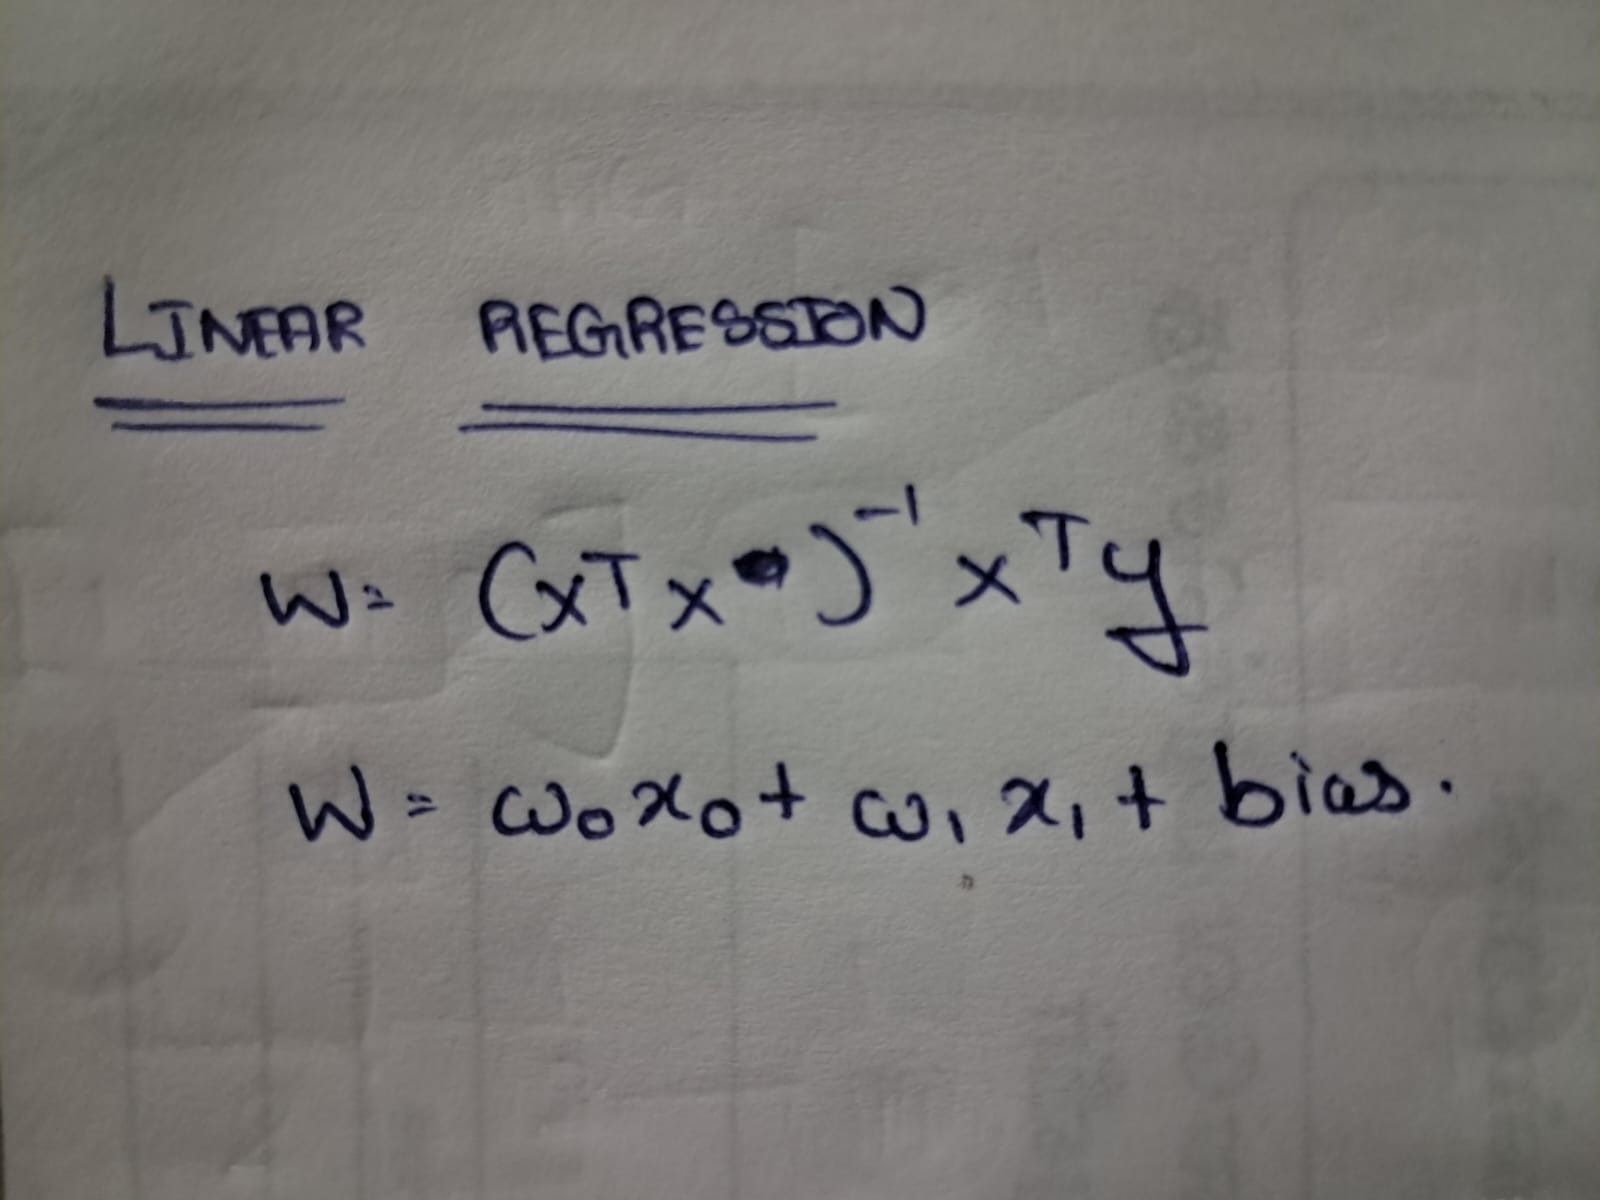 LINEAR REGRESSION
W = (xᵀx)⁻¹xᵀy
W = ω₀x₀ + ω₁x₁ + bias.